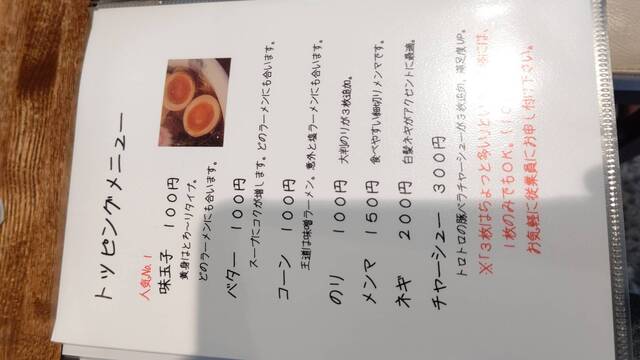 トッピングメニュー
人気No.1
味玉子 100円
黄身はとろ〜りタイプ。
どのラーメンにも合います。
バター 100円
スープにコクが増します。どのラーメンにも合います。
コーン 100円
王道は味噌ラーメン。意外と塩ラーメンにも合います。
のり 100円 大判のりが3枚追加。
メンマ 150円 食べやすい細切りメンマです。
ネギ 200円 白髪ネギがアクセントに最適。
チャーシュー 300円
トロトロの豚バラチャーシューが3枚追加、満足度UP。
※「3枚はちょっと多い」とい 際には、
1枚のみでもOK。
お気軽に従業員にお申し付け下さい。